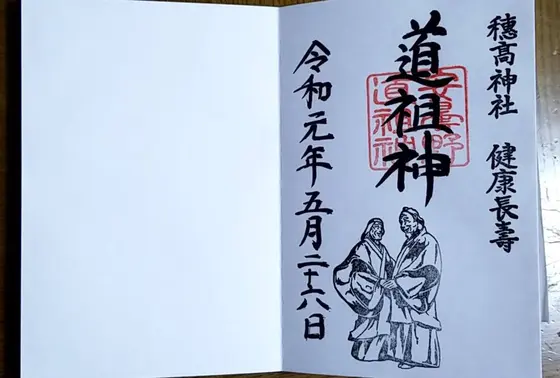 穗高神社　健康長壽
道祖神
安曇野
道祖神
令和元年五月二十八日